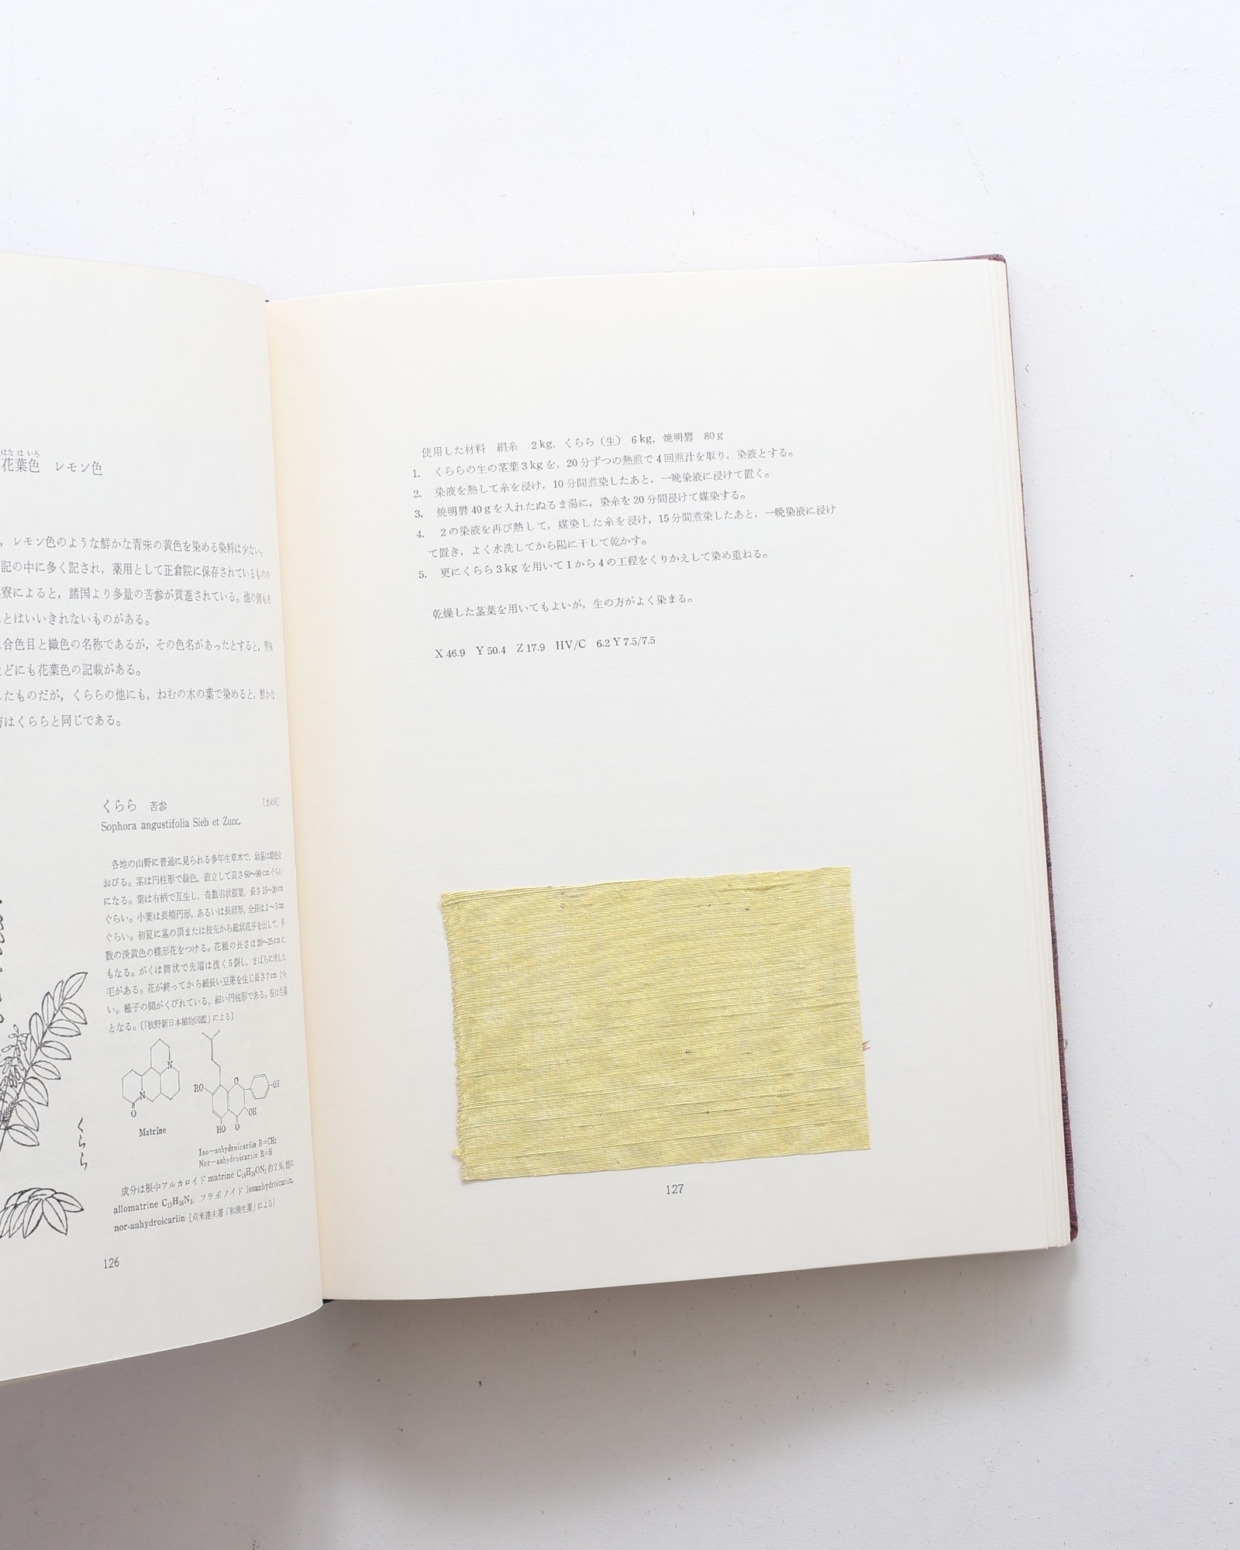 はなばいろ
花葉色　レモン色
，レモン色のような鮮かな青味の黄色を染める染料は少ない。
記の中に多く記され，薬用として正倉院に保存されているものの
寮によると，諸国より多量の苦参が貢進されている。他の例もあ
とはいいきれないものがある。
合色目と織色の名称であるが，その色名があったとすると，
どにも花葉色の記載がある。
したものだが，くららの他にも，ねむの木の葉で染めると，鮮かな
はくららと同じである。
くらら　苦参
Sophora angustifolia Sieb et Zucc.
各地の山野に普通に見られる多年生草木で，
おびる。茎は円柱形で緑色，直立して高さ60〜90cmぐらい
になる。葉は有柄で互生し，奇数羽状複葉，長さ15〜20cm
ぐらい。小葉は長楕円形，あるいは長卵形，全長は2〜3cm
ぐらい。初夏に茎の頂または枝先から総状花序を出して，多
数の淡黄色の蝶形花をつける。花穂の長さは20〜25cmに
もなる。がくは筒状で先端は浅く5裂し，
毛がある。花が終ってから細長い豆果を生じ長さ7cmぐら
い。種子の間がくびれている，細い円柱形である。
となる。［「牧野新日本植物図鑑」による］
くらら
N
N
O
Matrine
RO
O
OH
OH
HO
O
Iso-anhydroicariin R=CH₃
Nor-anhydroicariin R=H
成分は根中アルカロイド matrine
allomatrine フラボノイド isoanhydroicariin,
nor-anhydroicariin ［刈米達夫著「和漢生薬」による］
126
使用した材料　絹糸　2kg，くらら（生）6kg，焼明礬　80g
1.　くららの生の茎葉3kgを，20分ずつの熱煎で4回煎汁を取り，染液とする。
2.　染液を熱して糸を浸け，10分間煮染したあと，一晩染液に浸けて置く。
3.　焼明礬40gを入れたぬるま湯に，染糸を20分間浸けて媒染する。
4.　2の染液を再び熱して，媒染した糸を浸け，15分間煮染したあと，一晩染液に浸け
て置き，よく水洗してから陽に干して乾かす。
5.　更にくらら3kgを用いて1から4の工程をくりかえして染め重ねる。
乾燥した茎葉を用いてもよいが，生の方がよく染まる。
X 46.9　Y 50.4　Z 17.9　HV/C　6.2 Y 7.5/7.5
127